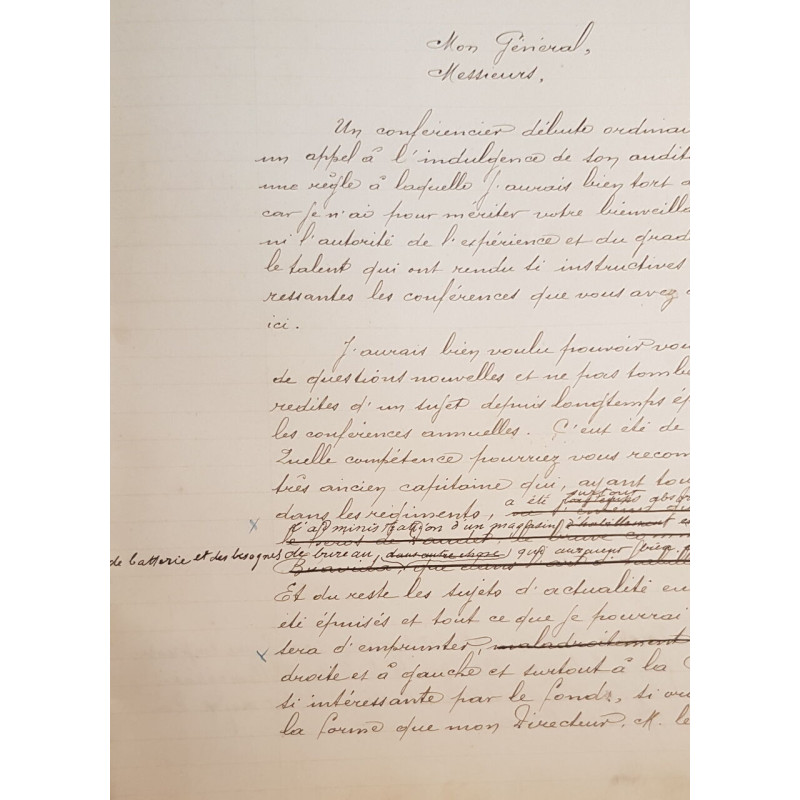 Mon Général,
Messieurs,
Un conférencier débute ordinai
un appel à l'indulgence de son audit
une règle à laquelle j'aurais bien tort d
car je n'ai pour mériter votre bienveilla
ni l'autorité de l'expérience et du grad
le talent qui ont rendu si instructives
ressantes les conférences que vous avez
ici.
J'aurais bien voulu pouvoir vou
de questions nouvelles et ne pas tombe
redites d'un sujet depuis longtemps ép
les conférences annuelles. C'eut été de
Quelle compétence pourriez vous recon
très ancien capitaine qui, ayant tou
dans les régiments, a été surtout abso
l'administration d'un magasin d'habillement
de batterie et des besognes de bureau, qui
Bravida, que dans
Et du reste les sujets d'actualité en
été épuisés et tout ce que je pourrai
sera d'emprunter, maladroitement
droite et à gauche et surtout à la
si intéressante par le fond, si
la forme que mon Directeur. M. le